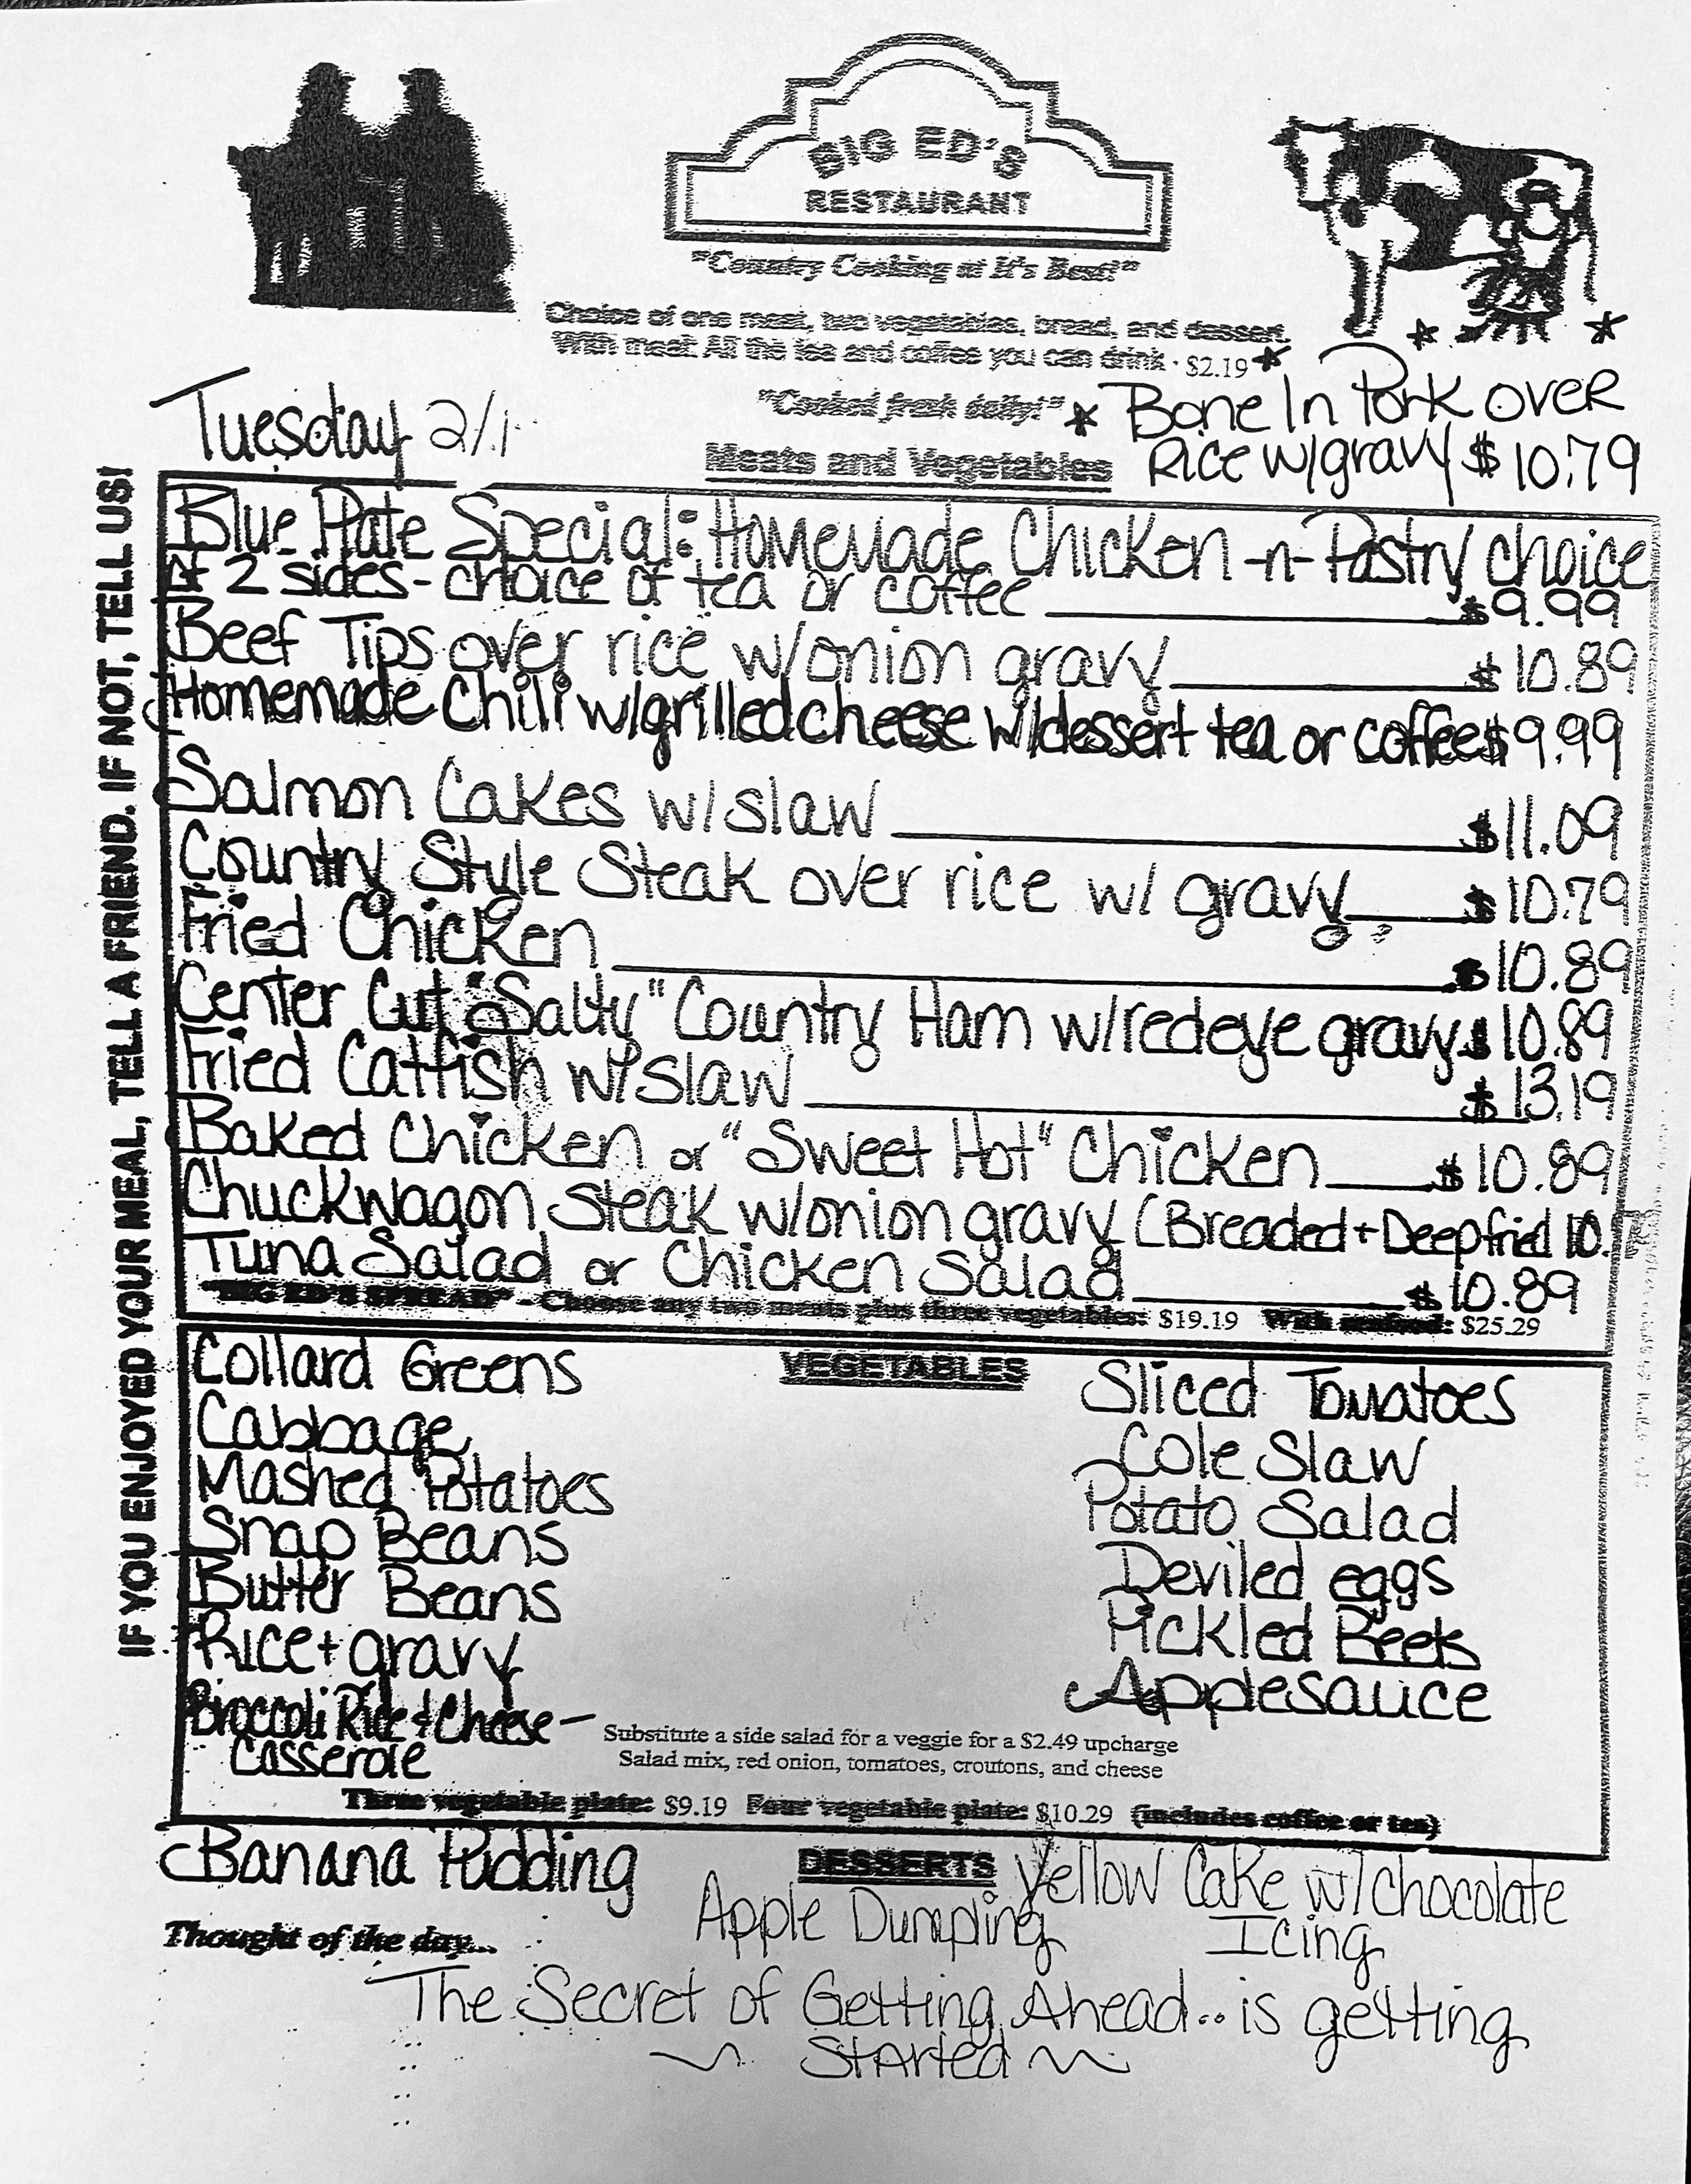 BIG ED'S
RESTAURANT
"Country Cooking at It's Best!"
Choice of one meat, two vegetables, bread, and dessert.
With meal: All the tea and coffee you can drink · $2.19
"Cooked fresh daily!"
Tuesday 2/1
* Bone In Pork over
Rice w/gravy $10.79
Meats and Vegetables
IF YOU ENJOYED YOUR MEAL, TELL A FRIEND. IF NOT, TELL US!
Blue Plate Special: Homemade Chicken -n- Pastry choice
of 2 sides - choice of tea or coffee $9.99
Beef Tips over rice w/onion gravy $10.89
Homemade Chili w/grilled cheese w/dessert tea or coffee $9.99
Salmon Cakes w/slaw $11.09
Country Style Steak over rice w/ gravy $10.79
Fried Chicken $10.89
Center Cut "Salty" Country Ham w/redeye gravy $10.89
Fried Catfish w/Slaw $13.19
Baked Chicken or "Sweet Hot" Chicken $10.89
Chuckwagon Steak w/onion gravy (Breaded + Deep fried
Tuna Salad or Chicken Salad $10.89
"BIG ED'S SPREAD" - Choose any two meats plus three vegetables: $19.19 With seafood: $25.29
VEGETABLES
Collard Greens
Cabbage
Mashed Potatoes
Snap Beans
Butter Beans
Rice + gravy
Broccoli Rice & Cheese -
Casserole
Sliced Tomatoes
Cole Slaw
Potato Salad
Deviled eggs
Pickled Beets
Applesauce
Substitute a side salad for a veggie for a $2.49 upcharge
Salad mix, red onion, tomatoes, croutons, and cheese
Three vegetable plate: $9.19 Four vegetable plate: $10.29 (includes coffee or tea)
DESSERTS
Banana Pudding
Apple Dumpling
Yellow Cake w/chocolate
Icing
Thought of the day...
The Secret of Getting Ahead.. is getting
~ Started ~